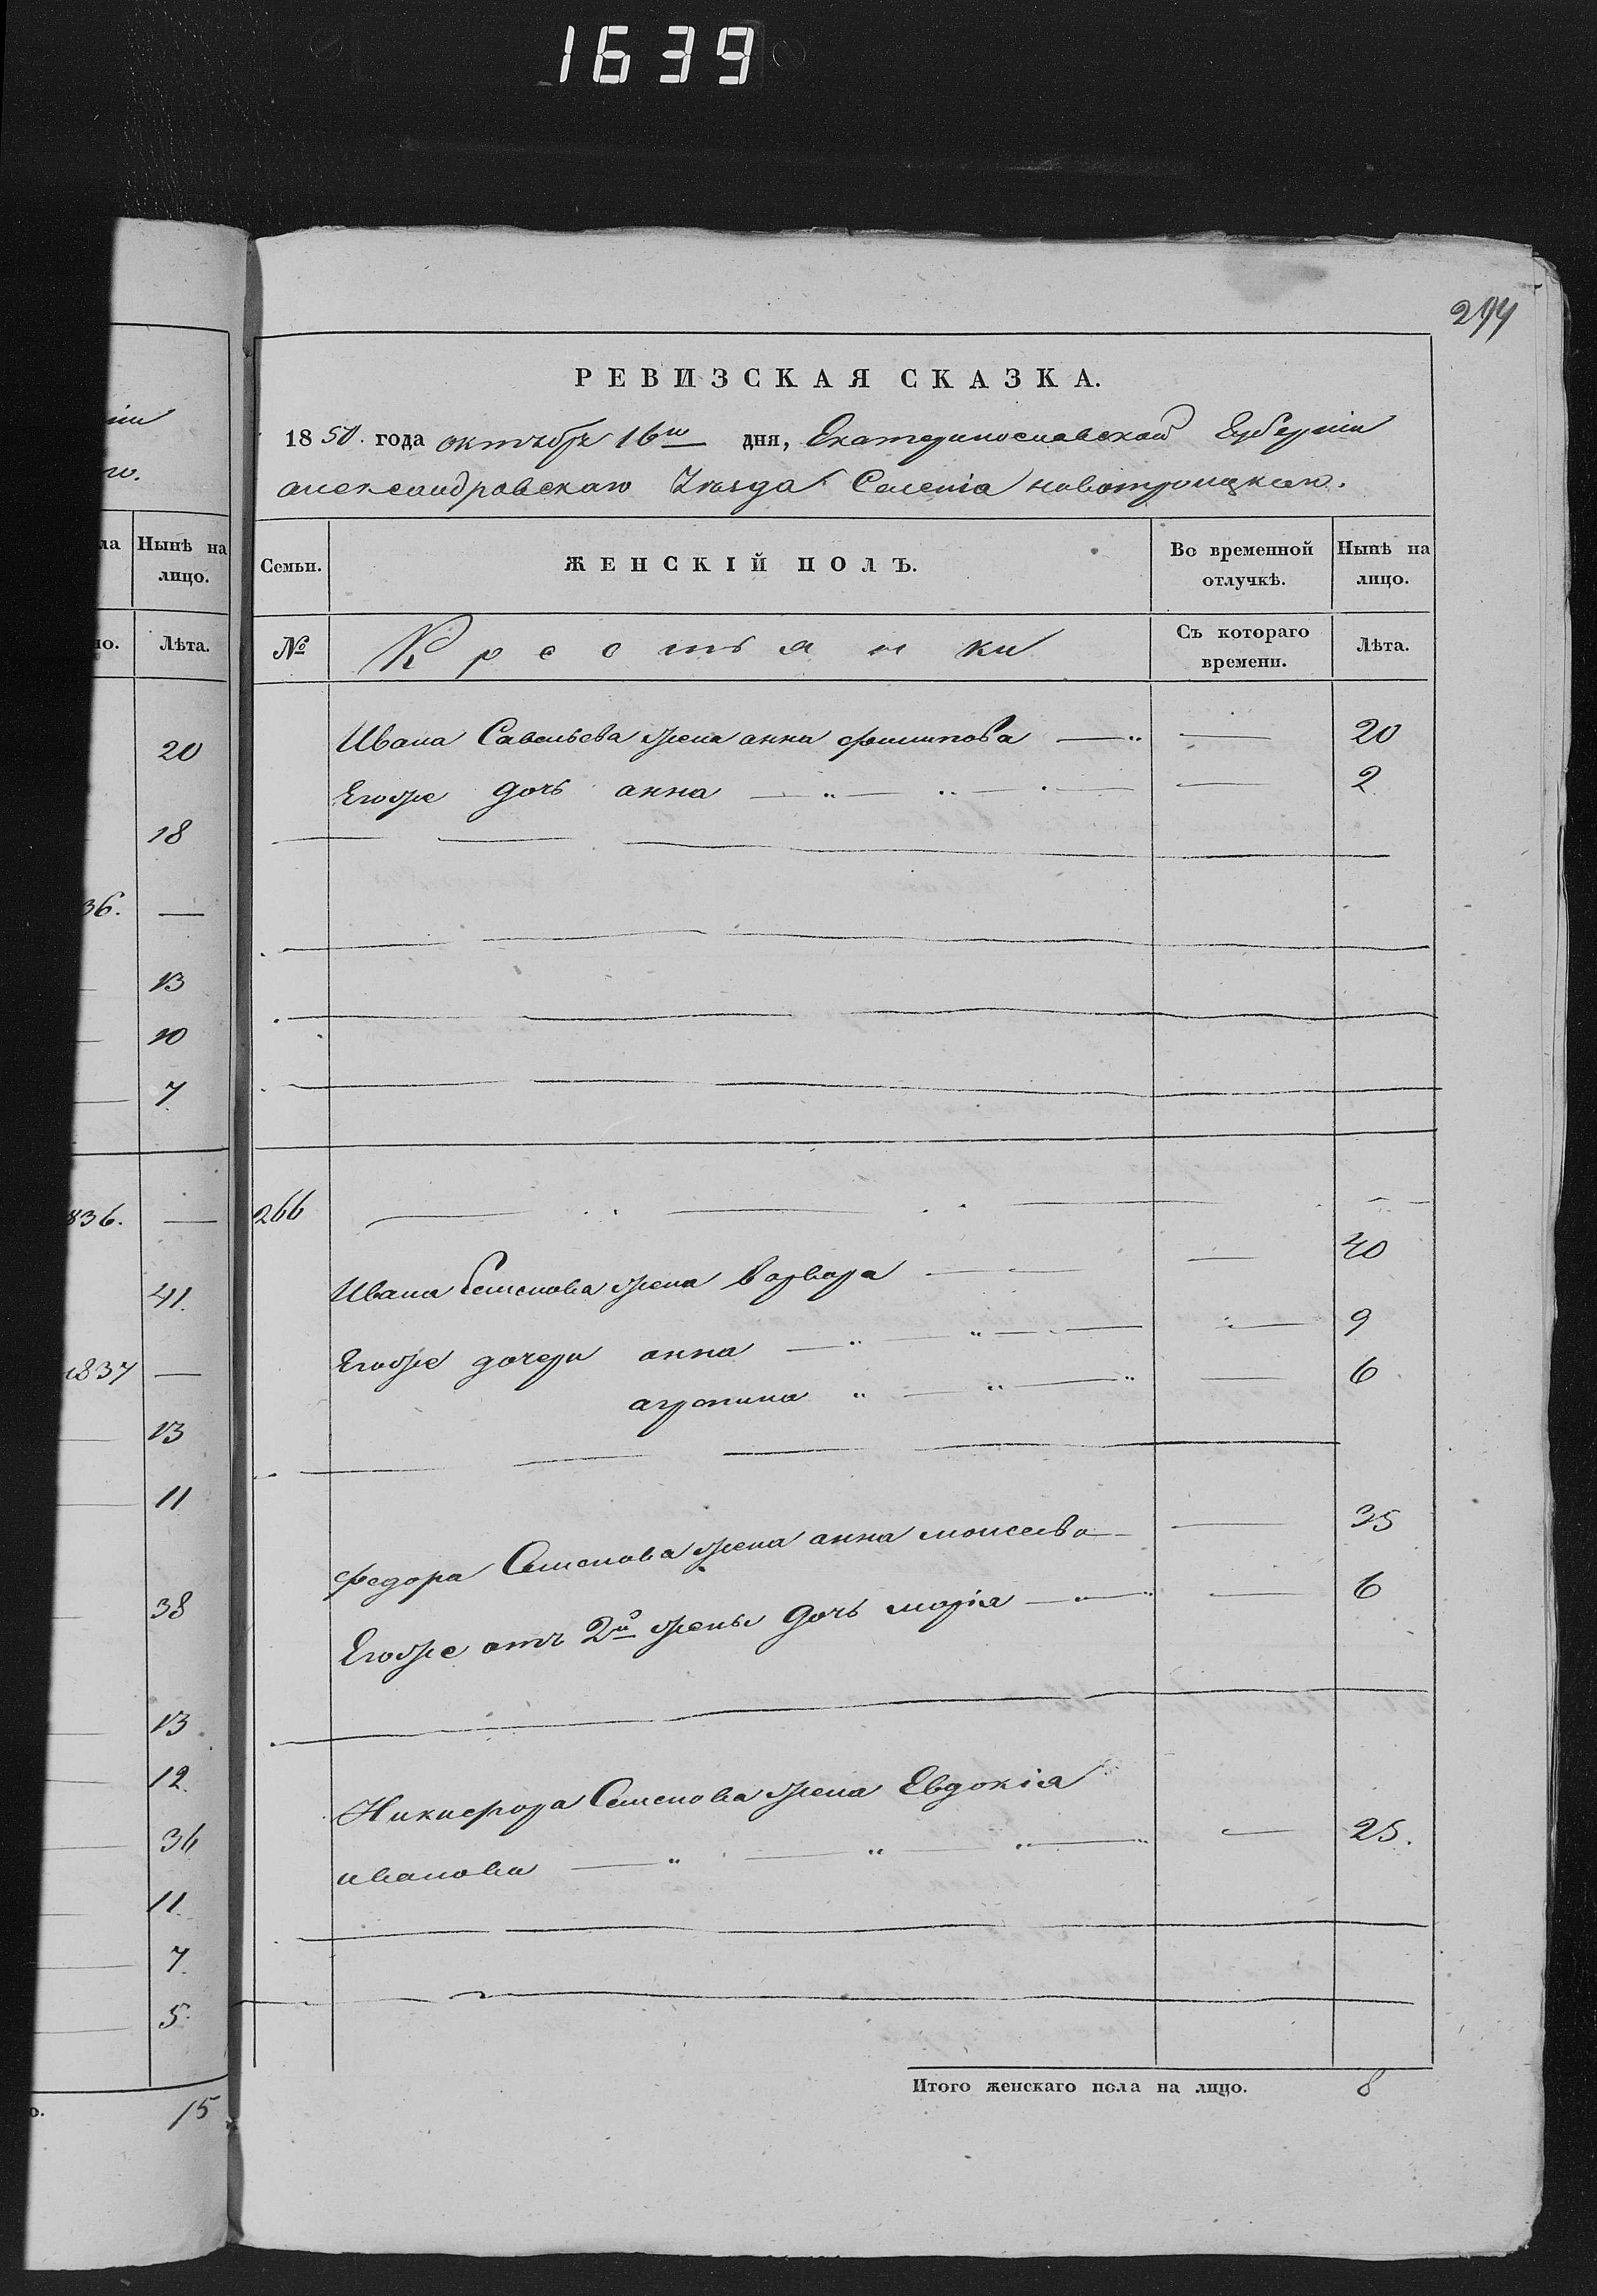 1639
РЕВИЗСКАЯ СКАЗКА.
1850. года октября 16го дня, Екатеринославской Губерніи
александровскаго Уезда Селенія новотроицкаго.
Нынѣ на
лицо.
Лѣта.
20
18
36.
13
10
7
836.
41.
1837
13
11
38
13
12
36
11
7
5
15
Семьи.
ЖЕНСКІЙ ПОЛЪ.
Во временной
отлучкѣ.
Нынѣ на
лицо.
№
Крестьянки
Съ котораго
времени.
Лѣта.
Ивана Савельева жена анна филипова 20
Егоже дочь анна 2
266
Ивана Семенова жена варвара 40
Егоже дочери анна 9
агрепина 6
федора Семенова жена анна моисеева 35
Егоже отъ 2й жены дочь марія 6
Никифора Семенова жена Евдокія
иванова 25.
Итого женскаго пола на лицо. 8